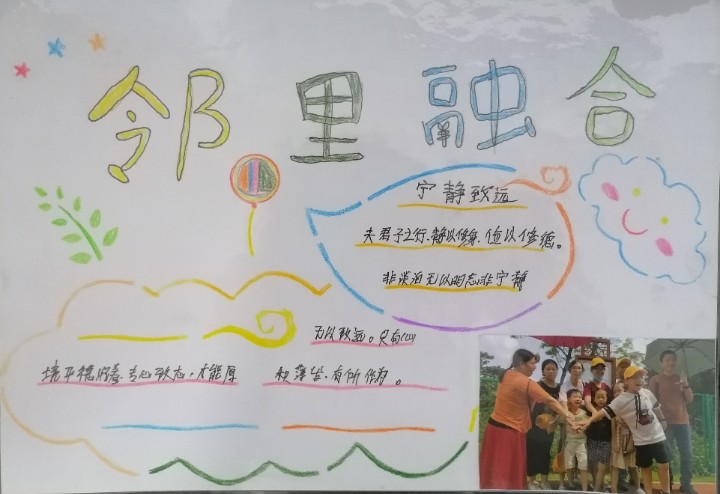 邻里融合
宁静致远
夫君子之行、静以修身、俭以修德。
非淡泊无以明志非宁静
无以致远。只有心
境平稳沉着、专心致志，才能厚
积薄发、有所作为。